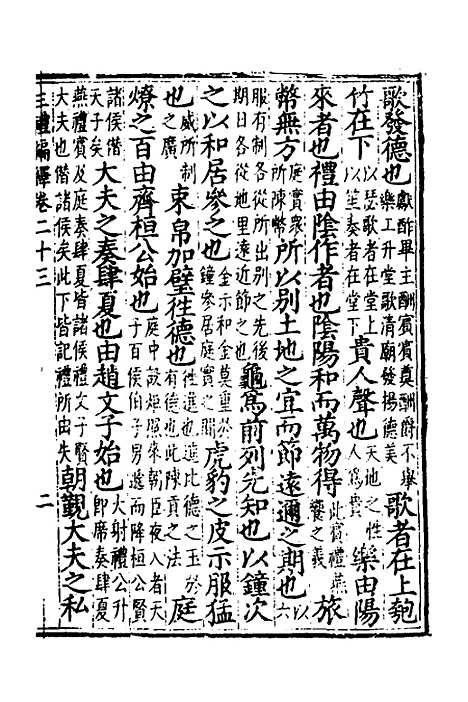 歌發德也獻酢畢主酬賓賓奠酬爵不舉樂工升堂歌清廟發揚德美歌者在上匏
竹在下以瑟歌者在堂上以笙奏者在堂下貴人聲也天地之性人爲貴樂由陽
來者也禮由陰作者也陰陽和而萬物得此賓禮燕饗之義旅
幣無方庭實衆所陳幣所以別土地之宜而節遠邇之期也以六
服有制各從所出別之先後期日各從地里遠近節之也龜爲前列先知也以鐘次
之以和居參之也鐘金示和金莫重於參居庭實之間虎豹之皮示服猛
也威所制之廣束帛加璧往德也往進也進比德之玉於有德也此陳貢之法庭
燎之百由齊桓公始也庭中設炬照來朝臣夜入者天子百侯伯子男遞而降桓公賢
諸侯僭天子矣大夫之奏肆夏也由趙文子始也大射禮公升即席奏肆夏
燕禮賓及庭奏肆夏皆諸侯禮文子賢大夫也僭諸侯矣此下皆記禮所由失朝覲大夫之私
三禮編繹卷二十三 二